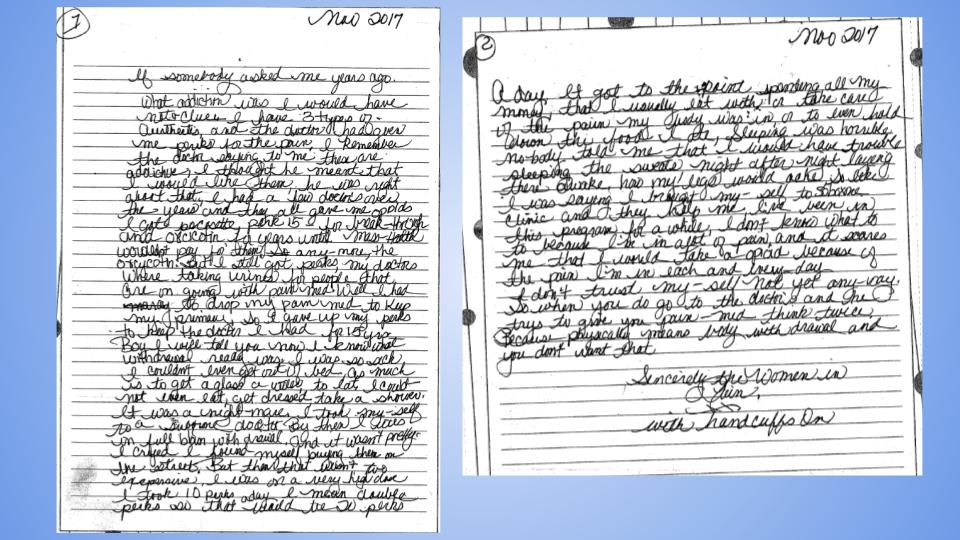 1
Nov 2017
If somebody asked me years ago.
What addiction was I would have
not a clue. I have 3 types of
and the doctor had given
me perks for the pain, I Remember
the doctor saying to me these are
addictive, I thought he meant that
I would like them, he was right
about that, I had a few doctors over
the years and they all gave me opoids
I got percosette perk 15 - for break-through
and oxcicotin for years until Mass-Health
wouldn't pay for them any-more, the
oxcycotin. But I still got perks my doctors
where taking urines for people that
are on going with pain med Well I had
to drop my pain med to keep
my primery, so I gave up my perks
to keep the doctor I had for 15 yrs.
Boy I will tell you now I know what
withdrawal really was. I was so sick,
I couldn't even get out of bed. As much
is to get a glass a water, to eat, I could
not even eat, get dressed take a shower.
It was a night-mare. I took my-self
to a doctor By then I was
in full blown with drawal. And it wasn't pretty.
I cried I found myself buying them on
the streets, But then that wasn't
expensive, I was on a very high dose
I took 10 perks a day I mean double
perks so that would be 20 perks
2
Nov 2017
A day. It got to the point spending all my
money, that I usually eat with, or take care
of the pain my body was in, or to even hold
down the food I ate, Sleeping was horrible
no-body told me that I would have trouble
sleeping the sweats night after night laying
there awake, has my legs would ache so like
I was saying I brought my-self to
Clinic and they help me, I've been in
this program for a while, I don't know what to
do because I'm in alot of pain, and it scares
me that I would take a opoid because of
the pain I'm in each and every day
I don't trust my-self not yet any-way.
So when you do go to the doctors and he
trys to give you pain-med think twice,
Because physically means body with drawal and
you don't want that
Sincerely the Women in
Pain,
with handcuffs On